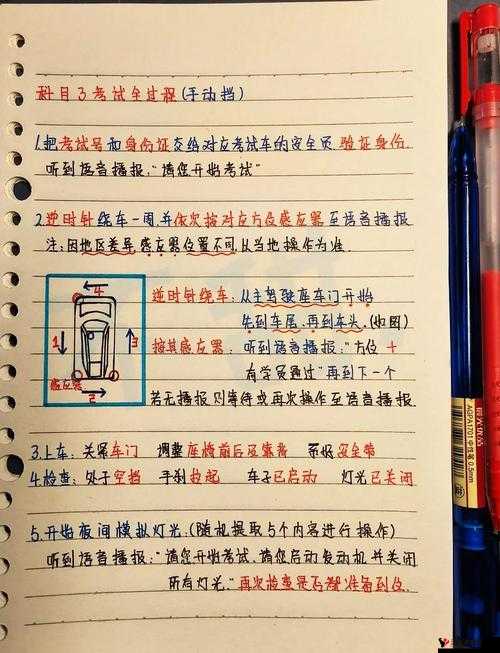 科目3考试全过程(手动挡)
1.把考试号和身份证交给对应考试车的安全员,验证身份.
听到语音播报:"请您开始考试"
2.逆时针绕车一周,并依次按对应方位感应器至语音播报
注:因地区差异,感应器位置不同,以当地操作为准.
4
1
3
2
感应器
逆时针绕车:从主驾驶座车门开始
先到车尾,再到车头.(如图)
按其感应器:听到语音播报:"方位+
有学员通过"再到下一个
若无播报则等待或再次操作至语音播报.
3.上车:关紧车门 调整座椅前后及靠背 系好安全带
4.检查:处于空挡 手刹拉起 车子已启动 灯光已关闭
5.开始夜间模拟灯光.(随机提取5个内容进行操作)
听到语音播报:"请您开始考试.请您启动发动机并关闭
所有灯光."再次检查是否都准备到位.
AGPA1701 中性笔 0.5mm